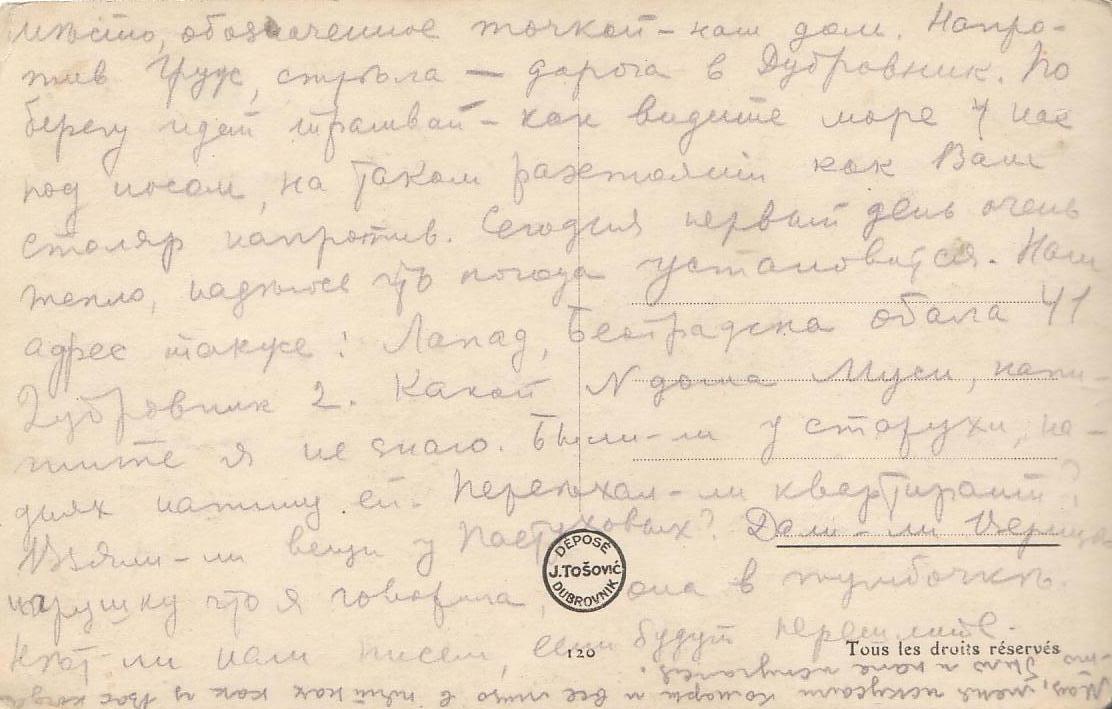 мѣсто, обозначенное точкой – наш дом. Напро-
тив Груж, стрѣла – дорога в Дубровник. По
берегу идет трамвай – как видите море у нас
под носом, на таком разстоянiи как Ваш
столяр напротив. Сегодня первый день очень
тепло, надѣюсь что погода установится. Наш
адрес также: Лапад, Београдска обала 41
Дубровник 2. Какой N дома Муси, напи-
шите я не знаю. Были-ли у старухи, на-
днях напишу ей. Переѣхал-ли квартирант?
Взяли-ли вещи у Пастуховых? Дали-ли
игрушку что я говорила, она в тумбочкѣ.
Нѣт-ли нам писем, если будут перешлите.
меня искусали комары и все лицо в как у Вас когда
было и
DÉPOSÉ
J. TOŠOVIĆ
DUBROVNIK
120
Tous les droits réservés